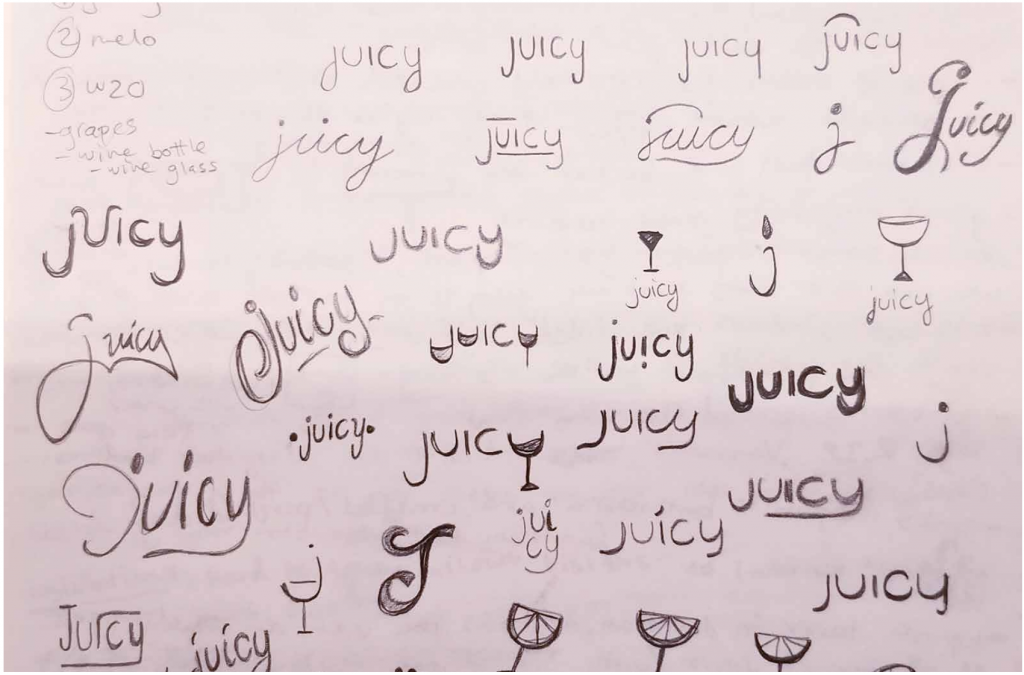 ② melo
③ w2o
-grapes
- wine bottle
- wine glass
juicy juicy juicy juicy
juicy juicy juicy j Juicy
juicy juicy juicy j juicy
juicy juicy juicy juicy juicy
•juicy• juicy juicy j
Juicy juicy
jui
cy
juicy
j J juicy
Juicy juicy